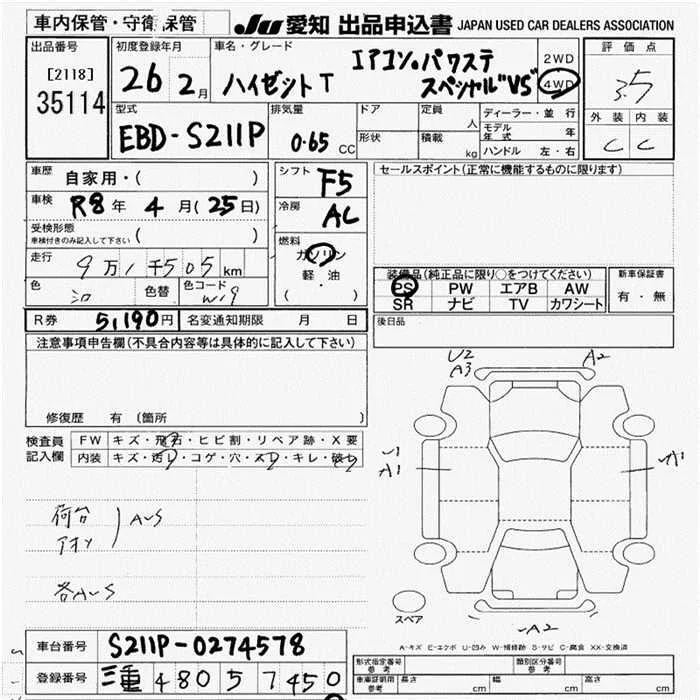 車内保管・守衛保管
JU 愛知 出品申込書 JAPAN USED CAR DEALERS ASSOCIATION
出品番号
[2118]
35114
初度登録年月
26 2月
車名・グレード
ハイゼットT
エアコン。パワステ
スペシャル"VS"
2WD
4WD
評価点
3.5
外装 内装
C C
型式
EBD-S211P
排気量
0.65 CC
ドア
形状
定員
人
積載
kg
ディーラー・並行
モデル年式 年
ハンドル 左・右
車歴
自家用・( )
車検
R8年 4月(25日)
受検形態
車検付きのみ記入して下さい ( )
走行
9万1千505km
色
シロ
色替
色コード
W19
シフト
F5
冷房
AC
燃料
ガソリン
軽・油
( )
セールスポイント(正常に機能するものに限ります)
装備品(純正品に限り○をつけてください)
PS PW エアB AW
SR ナビ TV カワシート
新車保証書
有・無
後日品
R券 5,190円 名変通知期限 月 日
注意事項申告欄(不具合内容等は具体的に記入して下さい)
修復歴 有 (箇所 )
検査員
記入欄
FW キズ・飛石・ヒビ割・リペア跡・X要
内装 キズ・汚レ・コゲ・穴・スレ・キレ・破レ
荷台
アオリ
AUS
各AUS
U2
A3
A2
A1
A1
A2
スペア
A-キズ E-エクボ U-凹み W-補修跡 S-サビ C-腐食 XX-交換済
車台番号 S211P-0274578
登録番号 三重 480 57 450
型式指定番号
参考
類別区分番号
参考
車庫証明用
参考
長さ cm 幅 cm 高さ cm